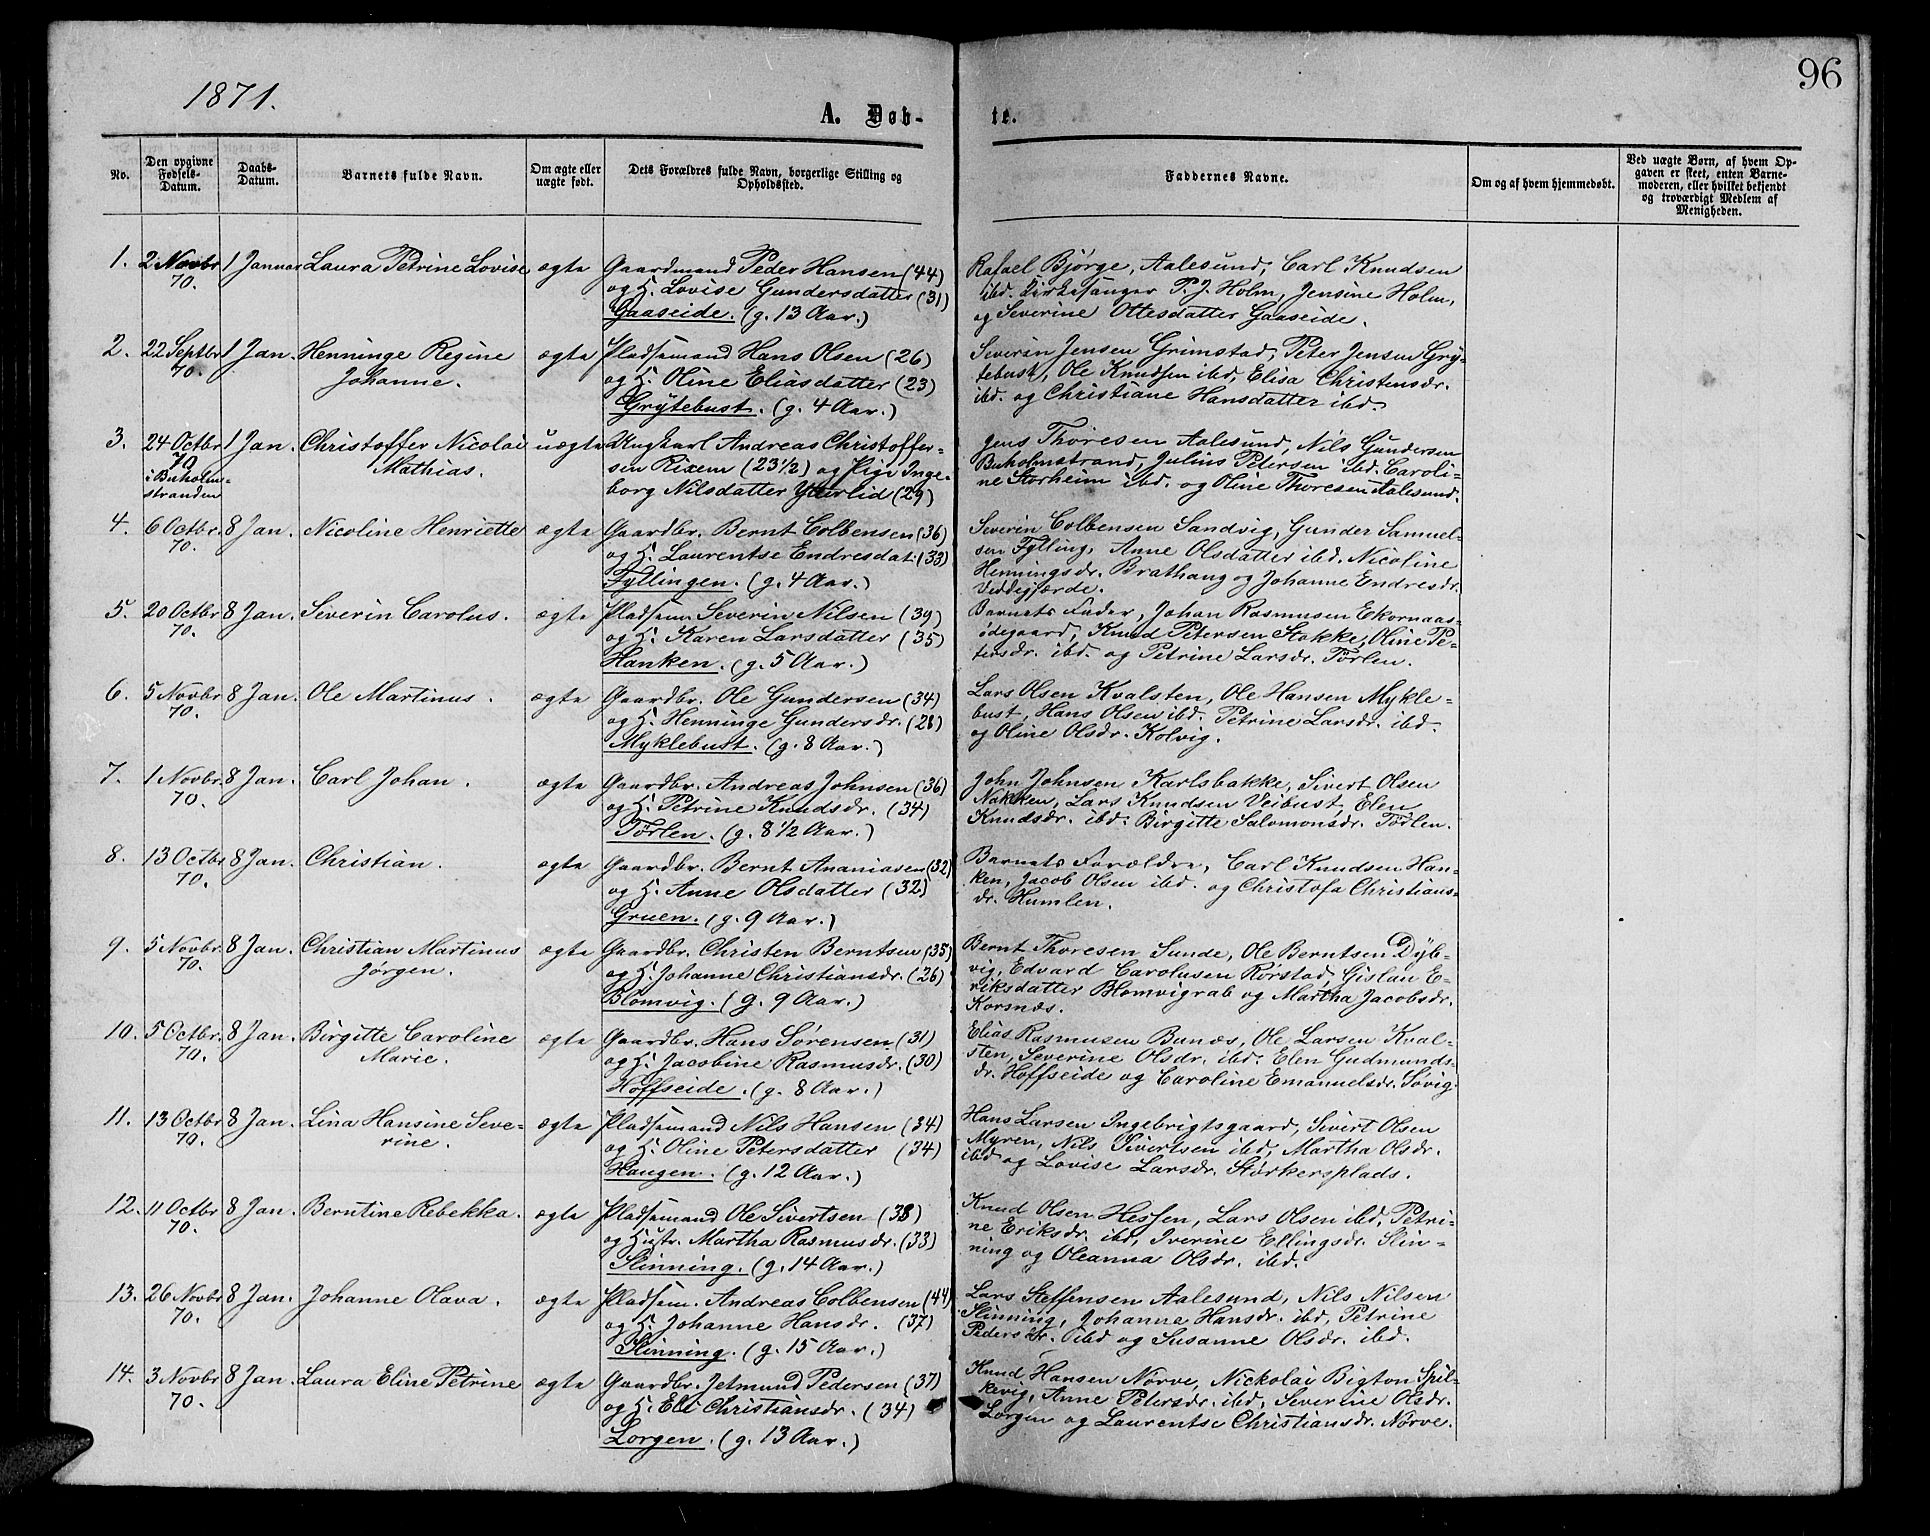 96
1871.
A. Døb-
te.
No.
Den opgivne Fødsels-Datum.
Daabs-Datum.
Barnets fulde Navn.
Om ægte eller uægte født.
Dets Forældres fulde Navn, borgerlige Stilling og Opholdssted.
Faddernes Navne.
Om og af hvem hjemmedøbt.
Ved uægte Børn, af hvem Op-
gaven er skeet, enten Barne-
moderen, eller hvilket bekjendt
og troværdigt Medlem af
Menigheden.
1. 2 Novbr 1 Januar Laura Petrine Lovise ægte Gaardmand Peder Hansen (44) Rafael Bjørge, Aalesund, Carl Knudsen
70. og H. Lovise Gundersdatter (31) ibd. Kirkesanger P. J. Holm, Jensine Holm,
Gaaseide. (g. 13 Aar.) og Severine Ottesdatter Gaaseide.
2. 22 Septbr 1 Jan. Henninge Regine ægte Pladsemand Hans Olsen (26) Severin Jensen Grimstad, Peter Jensen Gry-
70. Johanne. og H. Oline Eliasdatter (23) tebust, Ole Knudsen ibd, Elisa Christensdr.
Grytebust. (g. 4 Aar.) ibd. og Christiane Hansdatter ibd.
3. 24 Octbr 1 Jan. Christoffer Nicolai uægte Ungkarl Andreas Christoffer- Jens Thoresen Aalesund, Nils Gundersen
70 Mathias. sen Rixem (23 1/2) og Pige Inge- Buholmstrand, Julius Petersen ibd. Caroli-
i Buholm- borg Nilsdatter Ytterlid (29) ne Storheim ibd. og Oline Thoresen Aalesund.
stranden
4. 6 Octbr. 8 Jan. Nicoline Henriette ægte Gaardbr. Bernt Colbensen (36) Severin Colbensen Sandvig, Gunder Samuel-
70. og H. Laurentse Endresdat. (33) sen Fylling, Anne Olsdatter ibd. Nicoline
Fyllingen. (g. 4 Aar.) Henningsdr. Brathaug og Johanne Endresdr.
Viddegjorde.
5. 20 Octbr 8 Jan. Severin Carolus. ægte Pladsem Severin Nilsen (39) Barnets Fader, Johan Rasmusen Ekornaas-
70. og H. Karen Larsdatter (35) ødegaard, Knud Petersen Stokke, Oline Pe-
Hanken. (g. 5 Aar.) tersdr. ibd. og Petrine Larsdr. Tørlen.
6. 5 Novbr 8 Jan. Ole Martinus. ægte Gaardbr. Ole Gundersen (34) Lars Olsen Kvalsten, Ole Hansen Mykle-
70. og H. Henninge Gundersdr. (28) bust, Hans Olsen ibd. Petrine Larsdr. ibd.
Myklebust. (g. 8 Aar.) og Oline Olsdr. Kolvig.
7. 1 Novbr. 8 Jan. Carl Johan. ægte Gaardbr. Andreas Johnsen (36) John Johnsen Karlsbakke, Sivert Olsen
70. og H. Petrine Knudsdr. (34) Nakken, Lars Knudsen Veibust, Elen
Tørlen. (g. 8 1/2 Aar.) Knudsdr. ibd. Birgitte Salomonsdr. Tørlen.
8. 13 Octbr 8 Jan. Christian. ægte Gaardbr. Bernt Ananiasen (32) Barnets Forældre, Carl Knudsen Han-
70. og H. Anne Olsdatter (32) ken, Jacob Olsen ibd. og Christofa Christians-
Gruen. (g. 9 Aar.) dr. Humlen.
9. 5 Novbr. 8 Jan. Christian Martinus ægte Gaardbr. Christen Berntsen (35) Bernt Thoresen Sunde, Ole Berntsen Dyb-
70. Jørgen. og H. Johanne Christiansdr. (26) vig, Edvard Carolusen Rørstad, Gislau E-
Blomvig. (g. 9 Aar.) riksdatter Blomvigrab og Martha Jacobsdr.
Korsnæs.
10. 5 Octbr. 8 Jan. Birgitte Caroline ægte Gaardbr. Hans Sørensen (31) Elias Rasmusen Bunæs, Ole Larsen Kval-
70. Marie. og H. Jacobine Rasmusdr. (30) sten, Severine Olsdr. ibd. Elen Gudmunds-
Hoffseide. (g. 8 Aar.) dr. Hoffseide og Caroline Emanuelsdr. Søvig.
11. 13 Octbr. 8 Jan. Lina Hansine Seve- ægte Pladsemand Nils Hansen (34) Hans Larsen Ingebrigtsgaard, Sivert Olsen
70. rine. og H. Oline Petersdatter (34) Myren, Nils Sivertsen ibd, Martha Olsdr.
Haugen. (g. 12 Aar.) ibd og Lovise Larsdr. Størkersplads.
12. 11 Octbr 8 Jan. Berntine Rebekka. ægte Pladsemand Ole Sivertsen (38) Knud Olsen Hessen, Lars Olsen ibd, Petri-
70. og Hustr. Martha Rasmusdr. (33) ne Eriksdr. ibd, Iverine Ellingsdr. Slin-
Slinning. (g. 14 Aar.) ning og Oleanna Olsdr. ibd.
13. 26 Novbr 8 Jan. Johanne Olava. ægte Pladsem. Andreas Colbensen (44) Lars Steffensen Aalesund, Nils Nilsen
70. og H. Johanne Hansdr. (37) Slinning, Johanne Hansdr. ibd, Petrine
Slinning. (g. 15 Aar.) Pedersdr. ibd og Susanne Olsdr. ibd.
14. 3 Novbr 8 Jan. Laura Eline Petrine ægte Gaardbr. Jetmund Pedersen (37) Knud Hansen Nørve, Nickolai Bigton Spil-
70. og H. Eli Christiansdr. (34) kevig, Anne Petersdr. ibd, Severine Olsdr.
Lorgen. (g. 13 Aar.) Lorgen og Laurentse Christiansdr. Nørve.